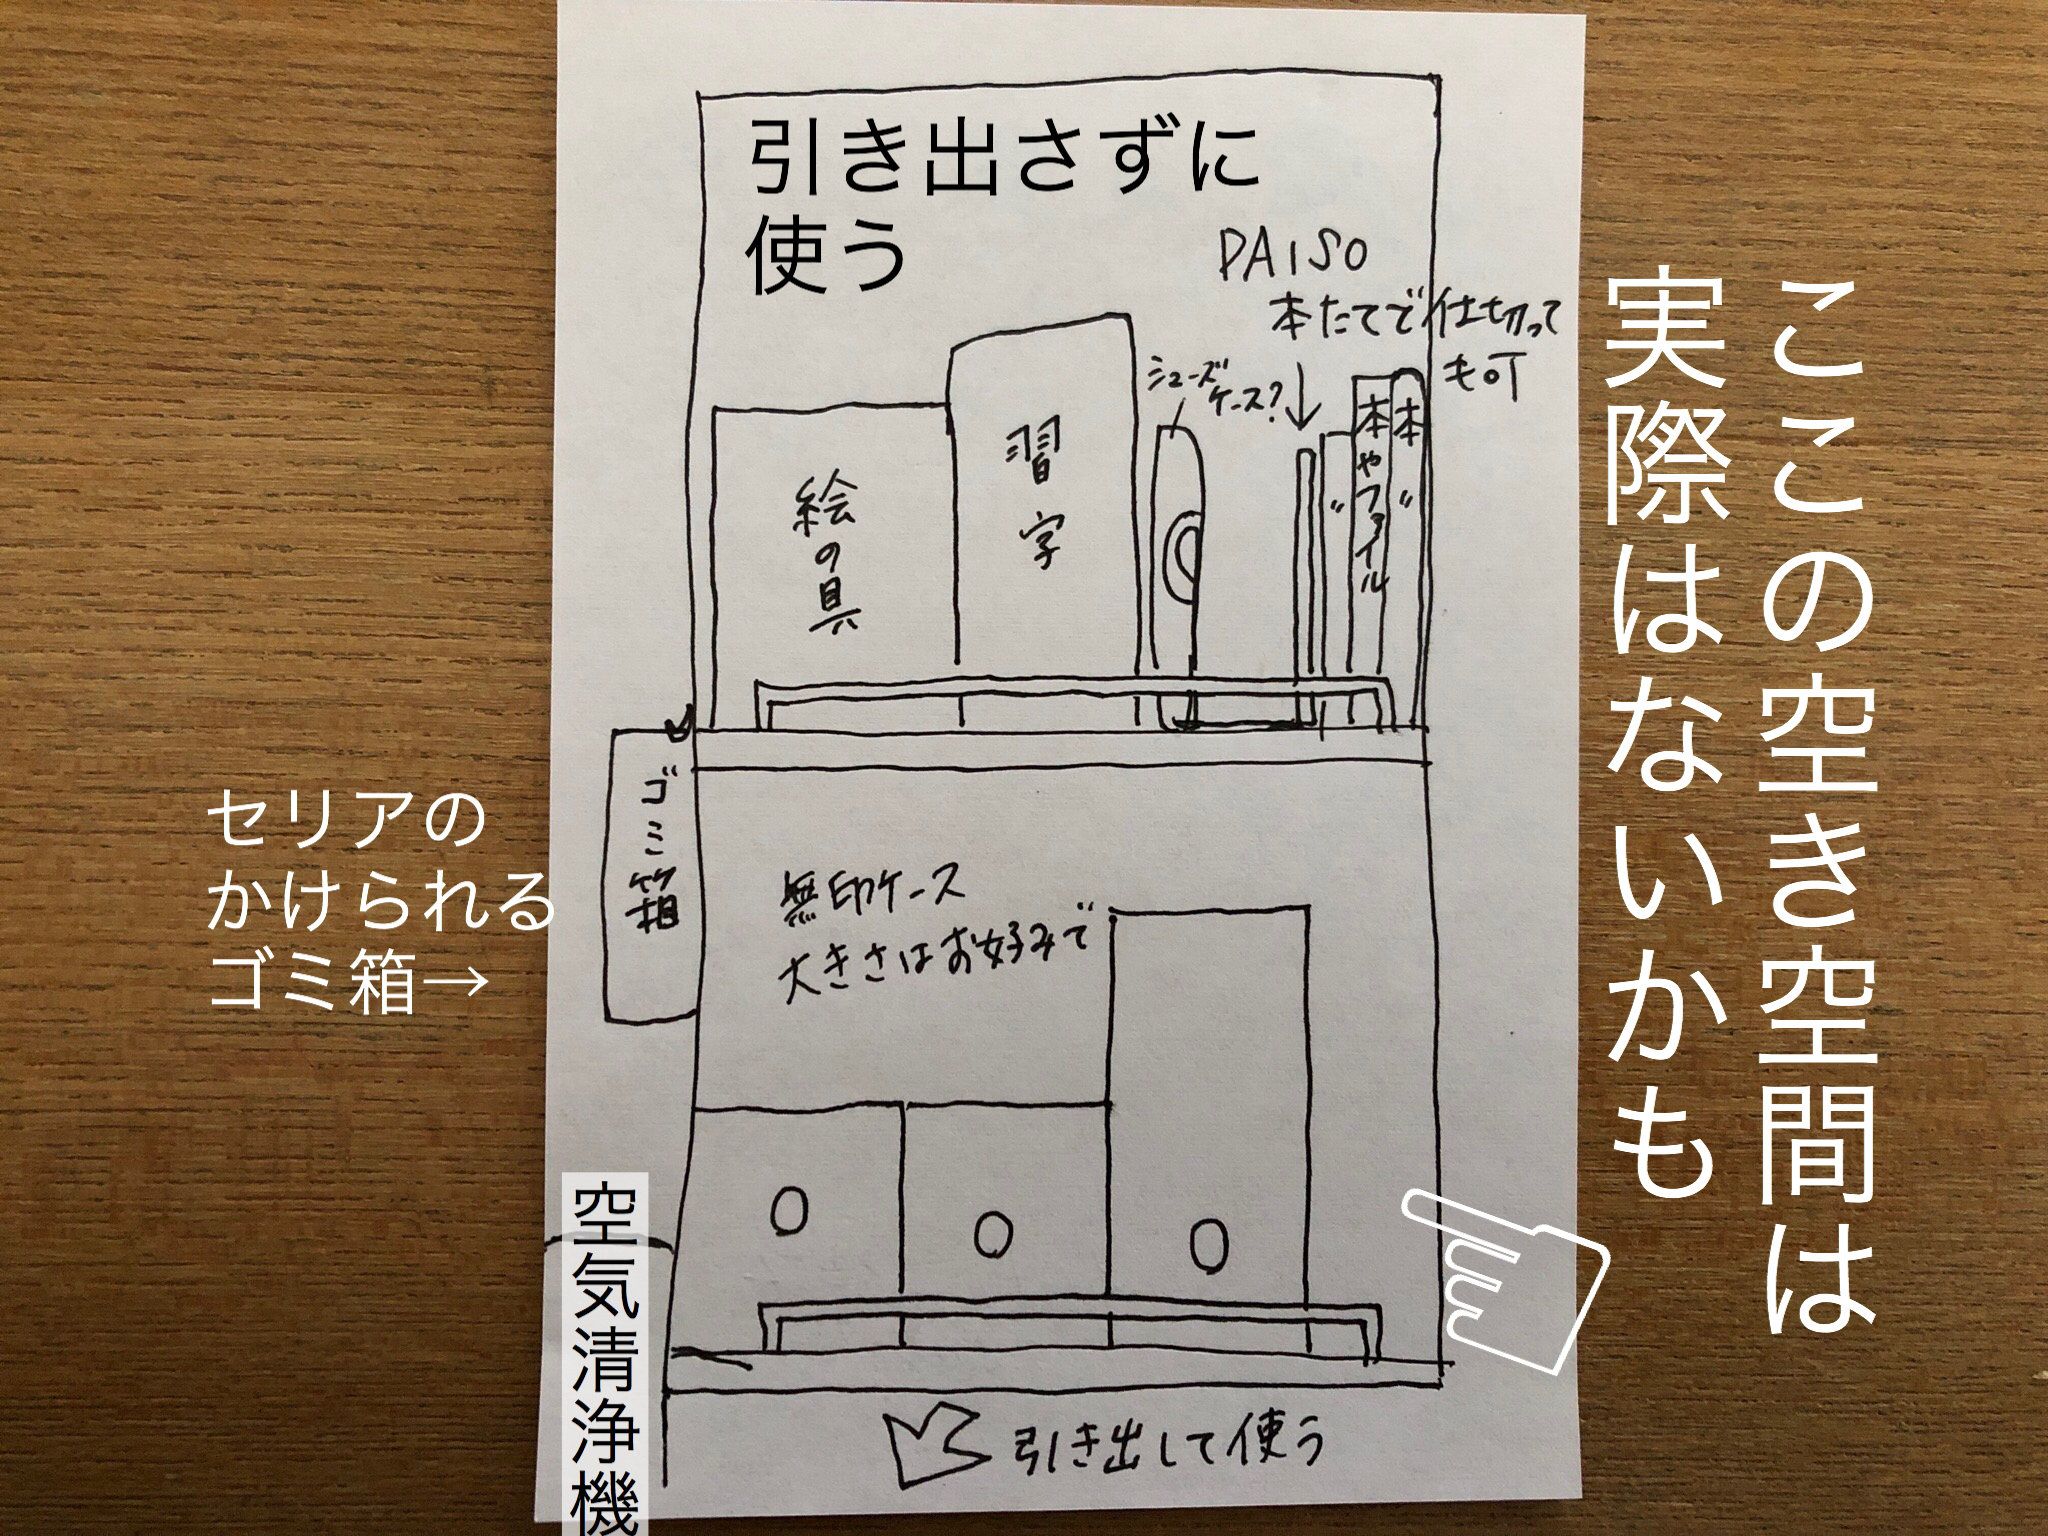 引き出さずに
使う
DAISO
本たてで仕切って
も可
シューズ
ケース?
絵の具
習字
〃
本やファイル
本〃
ここの空き空間は
実際はないかも
ゴミ箱
セリアの
かけられる
ゴミ箱→
無印ケース
大きさはお好みで
空気清浄機
引き出して使う